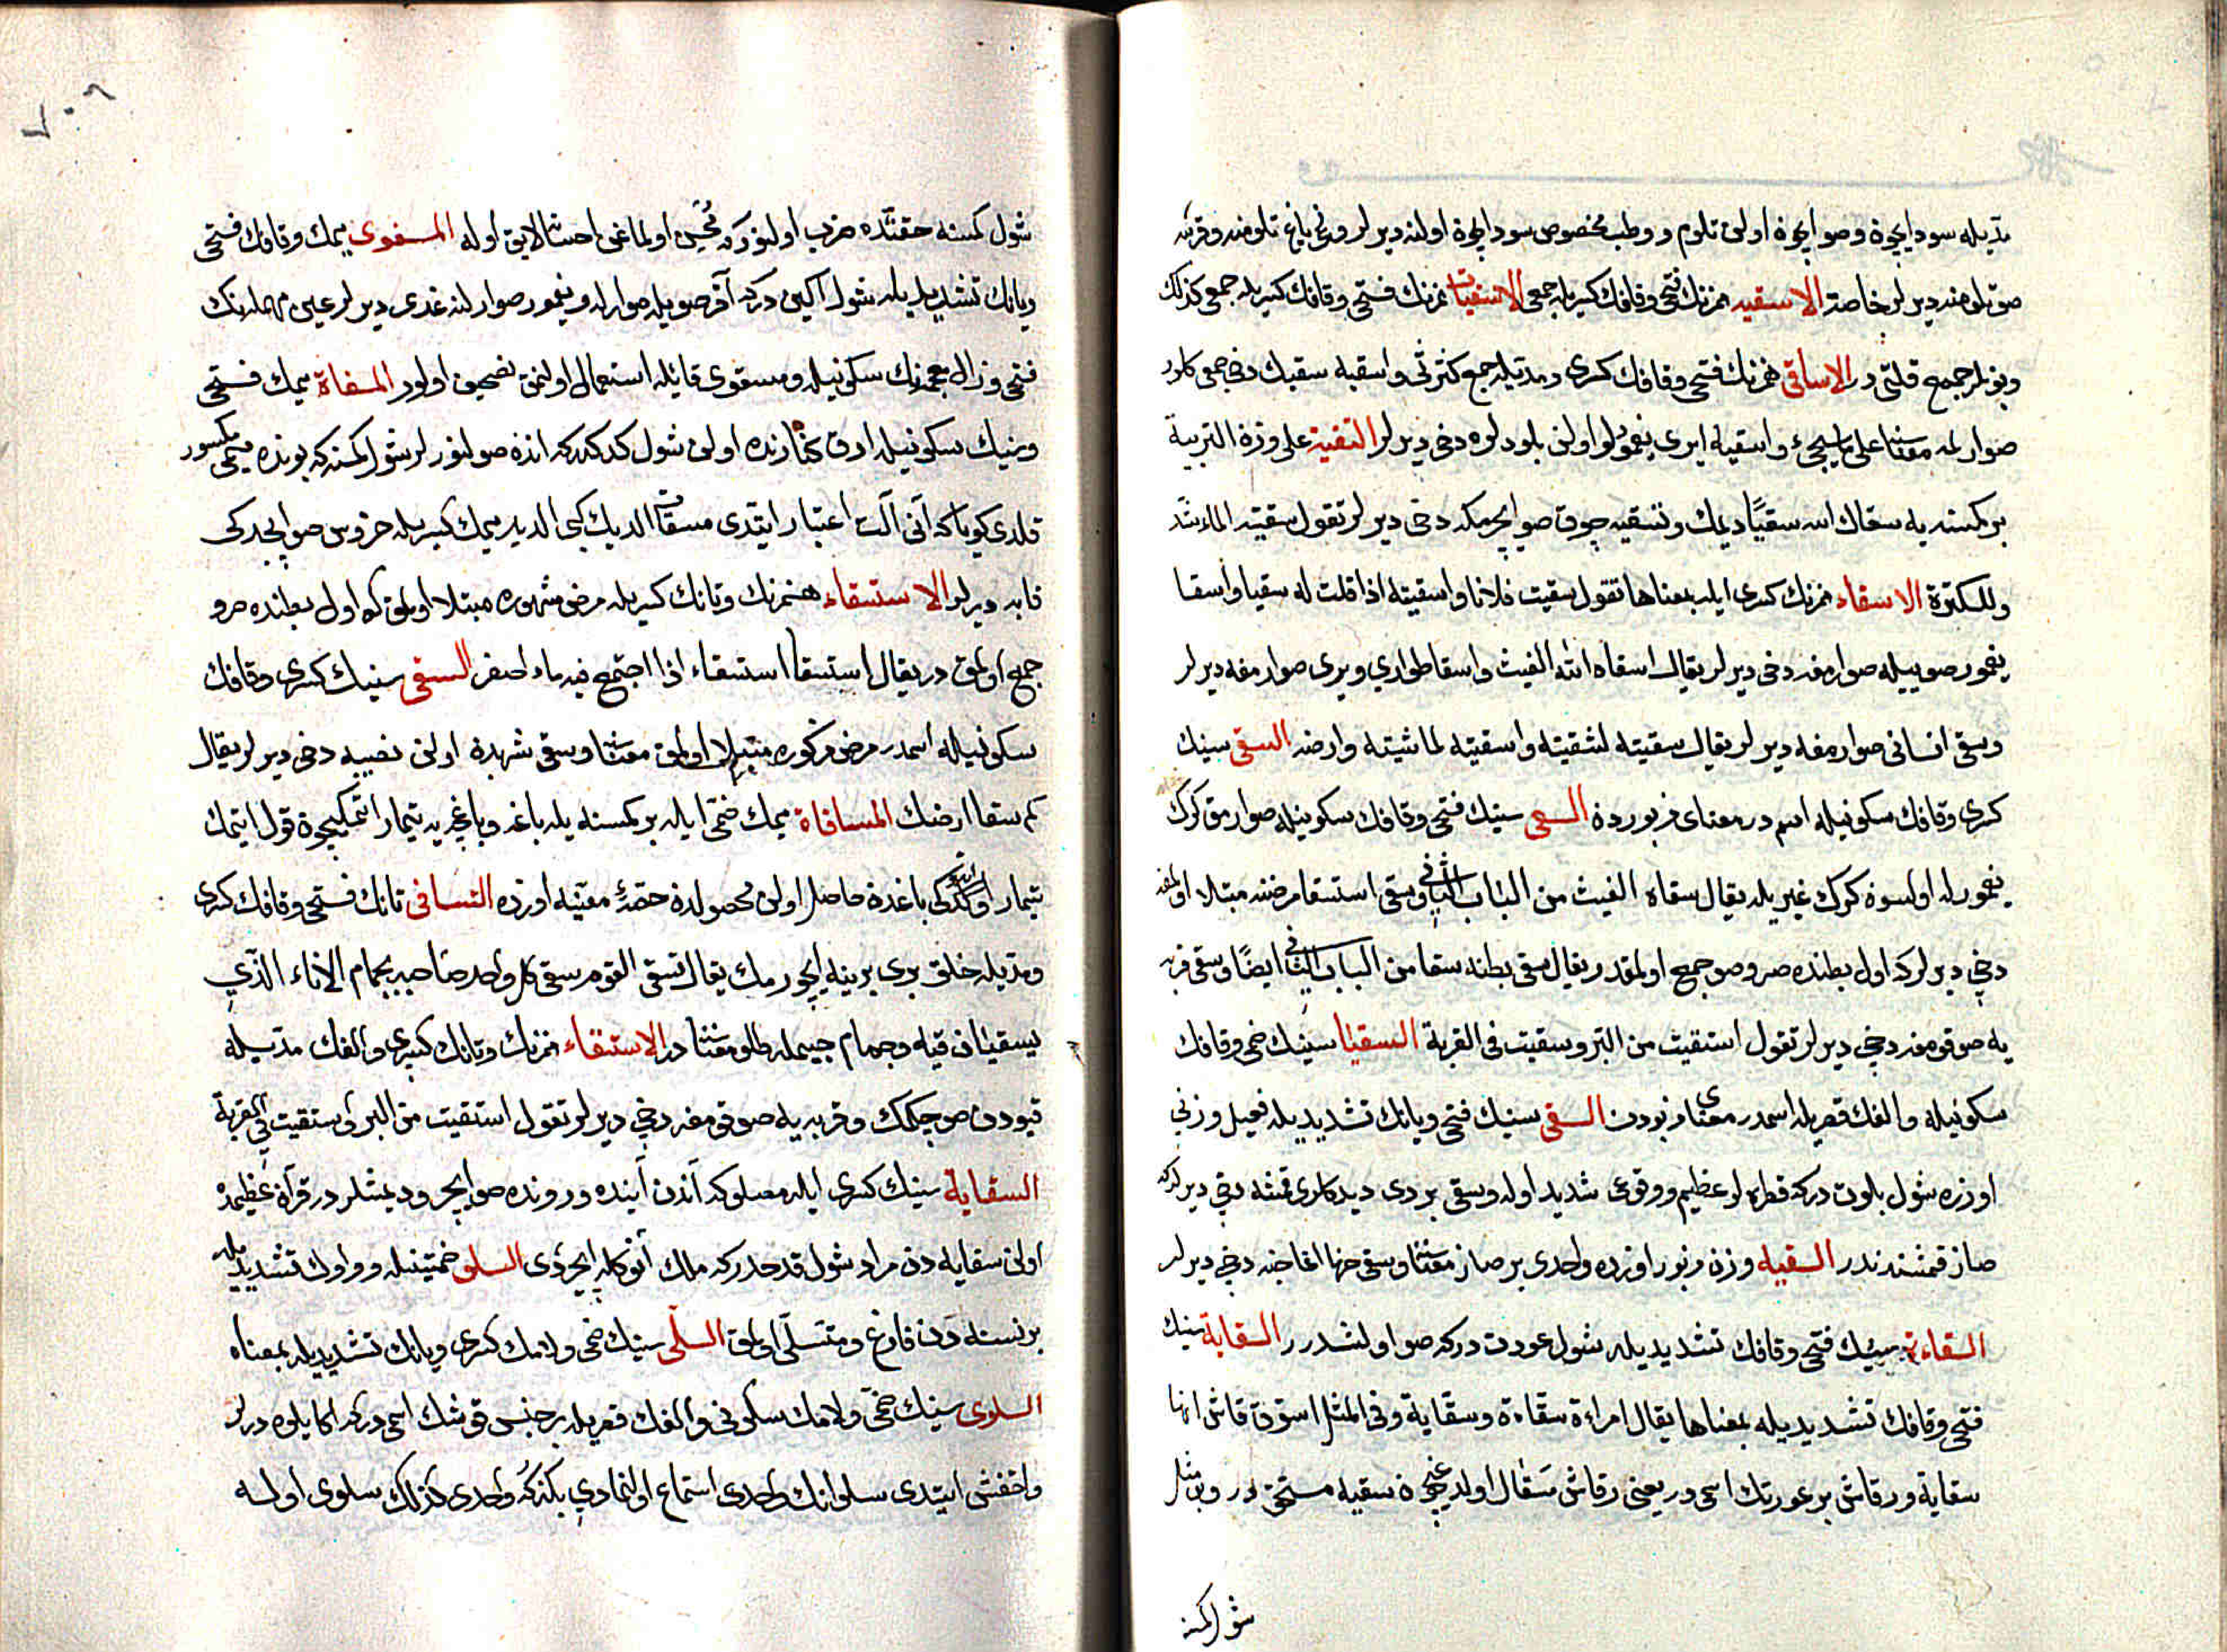 مدّيله سود ايچون وصو ايچون اولن تلوم ووطب مخصوص سود ايچون اولنه ديرلر ونحى ياغ تلومنه وقربه
صو تلومنه ديرلر خاصة الاسقيه همزنك فتحى وقافك كسريله جمعى الاسقيات همزنك فتحى وقافك كسريله جمعى كذلك
وبونلر جمع قلتى در الاساقى همزنك فتحى وقافك كسرى ومدّيله جمع كثرتى واسقيه سقينك دخى جمعى كلور
صوارلمه معناسنا على ما سيجئ واسقيه ايرى يغمورلو اولن بلودلره دخى ديرلر التسقية على وزن التربية
بر كمسنه يه سقاك الله سقيًا ديمك وتسقيه چوق صو ايچرمكه دخى ديرلر تقول سقيته الماء شدّد
وللكثرة الاسقاء همزنك كسرى ايله بمعناها تقول سقيت فلانا واسقيته اذا قلت له سقيا واسقا
يغمور صوييله صوارمغه دخى ديرلر يقال اسقاه الله الغيث واسقا طوارى ويرى صوارمغه ديرلر
وسقى انسانى صوارمغه ديرلر يقال سقيته لشفته واسقيته لماشيته وارضه السقى سينك
كسرى وقافك سكونيله اسم در معناى مزبوردن السقى سينك فتحى وقافك سكونيله صوارمق كرك
يغمورله اولسون كرك غيريله يقال سقاه الغيث من الباب الثانى وسقى استسقا مرضنه مبتلا اولمغه
دخى ديرلر كه اول بطنده صرو صو جمع اولمقدر يقال سقى بطنه سقيا من الباب الثانى ايضًا وسقى قربه
يه صو قومغه دخى ديرلر تقول استقيت من البئر وسقيت فى القربة السقيا سينك ضمى وقافك
سكونيله والفك قصريله اسمدر معناى مزبوردن السقى سينك فتحى ويانك تشديديله فعيل وزنى
اوزره شول بلوت دركه قطره لو عظيم ووقوعى شديد اوله وسقى بردى ديدكلرى قمشه دخى ديرلر كه
صاز قمشندندر السقيه وزن مزبور اوزره واحدى بر صاز معناسنا وسقى خرما اغاجنه دخى ديرلر
السقاءة سينك فتحى وقافك تشديديله شول عورت دركه صو اولشدرر السقاية سينك
فتحى وقافك تشديديله بمعناها يقال امراءة سقاءة وسقاية وفى المثل اسق رقاش انها
سقاية ورقاش بر عورتك اسمى در يعنى رقاش سقال اولديغيچون سقيه مستحق در وبو مثل
شول كمسنه
٧٠٩
شول كمسنه حقنده ضرب اولنور كه محسن اولماغى احسانا لايق اوله المسقوى ميمك وقافك فتحى
ويانك تشديديله شول اكين دركه آقر صويله صوارله ويغمور صوارلنه غدى ديرلر عين مهملهنك
فتحى وذال معجمهنك سكونيله ومسقوى فائيله استعمال اولنمق تصحيف اولور المسقاة ميمك فتحى
وسينك سكونيله ارق كنارنده اولن شول كدكدر كه انده صولنورلر شول كمسنه كه بونده ميمى مكسور
قلدى كويا كه آنى آلت اعتبار ايتدى مسقاة الديك كبى الديد ميمك كسريله خروس صو ايچدكى
قابه ديرلر الاستسقاء همزنك وتانك كسريله مرض مشهوره مبتلا اولمق كه اول بطنده صرو
جمع اولمق در يقال استسقا استسقاء اذا اجتمع فيه ماء اصفر السقى سينك كسرى وقافك
سكونيله اسمدر مرض مذكوره مبتلا اولمق معناسنا وسقى شربدن اولن نصيبه دخى ديرلر يقال
كم سقا ارضك المساقاة ميمك ضمى ايله بر كمسنه يله باغه وباغچه يه تيمار اتمكيچون قول ايتمك
تيمار اولندكى باغدن حاصل اولن محصولدن حصّهٔ معيّنه اوزره التساقى تانك فتحى وقافك كسرى
ومدّيله خلق برى برينه ايچورمك يقال تساقى القوم سقى كل واحد صاحبه بجمام الاناء الذى
يسقيان فيه وجمام جيمله طلو معناسنا در الاستقاء همزنك وتانك كسرى والفك مدّيله
قيودن صو چكمك وقربه يه صو قومغه دخى ديرلر تقول استقيت من البئر واستقيت فى القربة
السقاية سينك كسرى ايله مصلو كه آندن آينده ورونده صو ايچر وديمشلردر قرآن عظيمده
اولن سقايه دن مراد شول قدحدر كه ملك آنوكله ايچردى السلو ضمتينله وواوك تشديديله
بر نسنه دن فارغ ومتسلّى اولمق السلّى سينك ضمى ولامك كسرى ويانك تشديديله بمعناه
السلوى سينك ضمى ولامك سكونى والفك قصريله بر جنس قوشك اسمى دركه اكا يلوه ديرلر
واخفش ايتدى سلوانك واحدى استماع اولنمادى بكزركه واحدى كذلك سلوى اوله